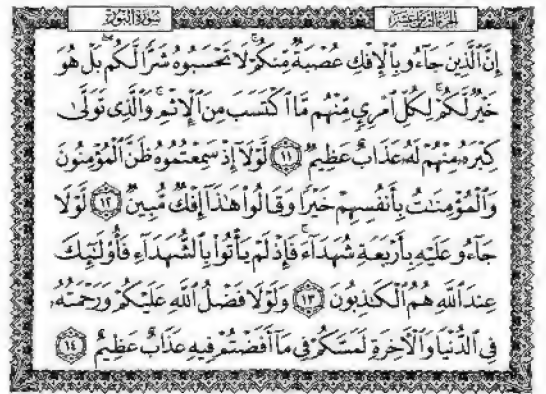 سورة النور الجزء الثامن عشر
إِنَّ ٱلَّذِينَ جَآءُو بِٱلْإِفْكِ عُصْبَةٌ مِّنكُمْ ۚ لَا تَحْسَبُوهُ شَرًّا لَّكُم ۖ بَلْ هُوَ
خَيْرٌ لَّكُمْ ۚ لِكُلِّ ٱمْرِئٍ مِّنْهُم مَّا ٱكْتَسَبَ مِنَ ٱلْإِثْمِ ۚ وَٱلَّذِى تَوَلَّىٰ
كِبْرَهُۥ مِنْهُمْ لَهُۥ عَذَابٌ عَظِيمٌ ۝١١ لَّوْلَآ إِذْ سَمِعْتُمُوهُ ظَنَّ ٱلْمُؤْمِنُونَ
وَٱلْمُؤْمِنَٰتُ بِأَنفُسِهِمْ خَيْرًا وَقَالُوا۟ هَٰذَآ إِفْكٌ مُّبِينٌ ۝١٢ لَّوْلَا
جَآءُو عَلَيْهِ بِأَرْبَعَةِ شُهَدَآءَ ۚ فَإِذْ لَمْ يَأْتُوا۟ بِٱلشُّهَدَآءِ فَأُو۟لَٰٓئِكَ
عِندَ ٱللَّهِ هُمُ ٱلْكَٰذِبُونَ ۝١٣ وَلَوْلَا فَضْلُ ٱللَّهِ عَلَيْكُمْ وَرَحْمَتُهُۥ
فِى ٱلدُّنْيَا وَٱلْءَاخِرَةِ لَمَسَّكُمْ فِى مَآ أَفَضْتُمْ فِيهِ عَذَابٌ عَظِيمٌ ۝١٤